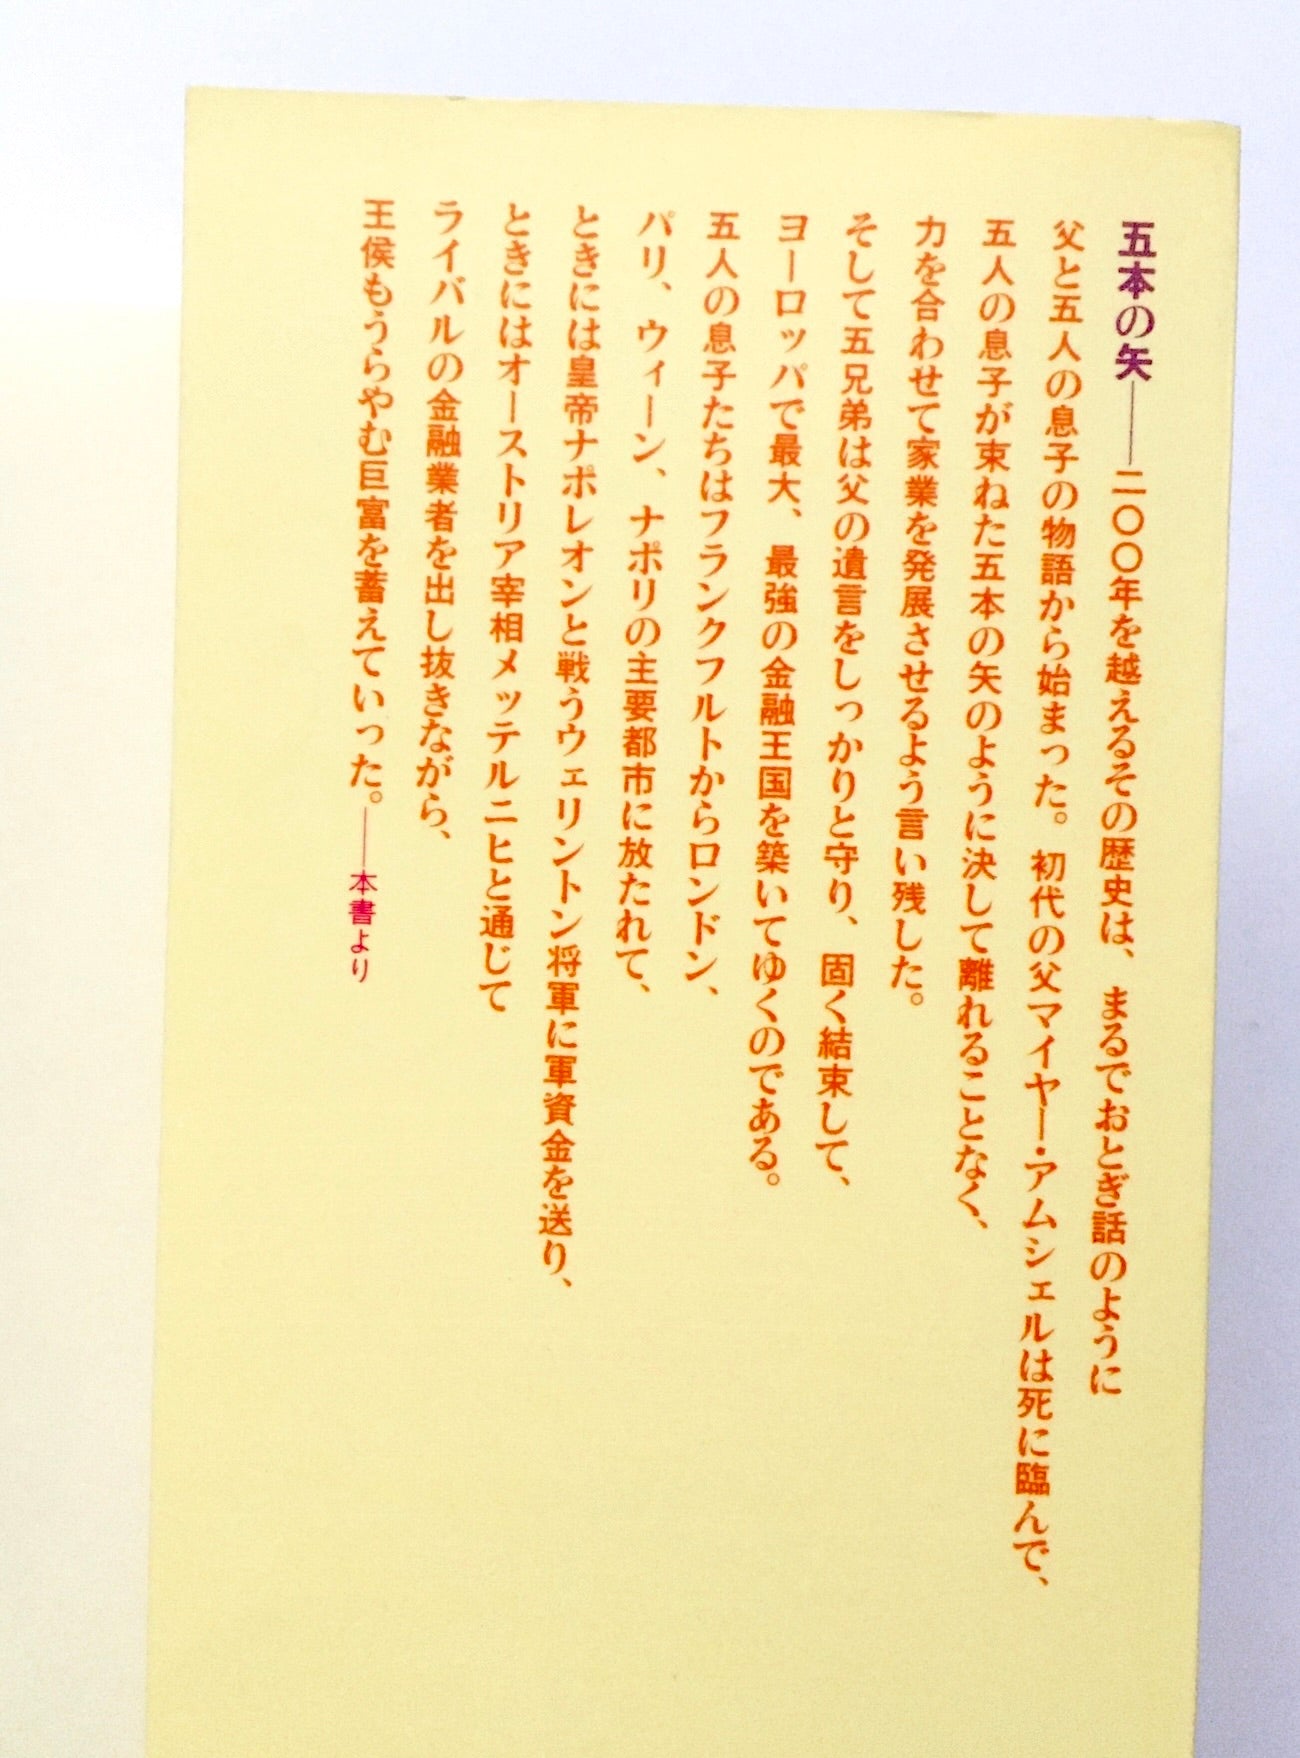 五本の矢――二〇〇年を越えるその歴史は、まるでおとぎ話のように
父と五人の息子の物語から始まった。初代の父マイヤー・アムシェルは死に臨んで、
五人の息子が束ねた五本の矢のように決して離れることなく、
力を合わせて家業を発展させるよう言い残した。
そして五兄弟は父の遺言をしっかりと守り、固く結束して、
ヨーロッパで最大、最強の金融王国を築いてゆくのである。
五人の息子たちはフランクフルトからロンドン、
パリ、ウィーン、ナポリの主要都市に放たれて、
ときには皇帝ナポレオンと戦うウェリントン将軍に軍資金を送り、
ときにはオーストリア宰相メッテルニヒと通じて
ライバルの金融業者を出し抜きながら、
王侯もうらやむ巨富を蓄えていった。――本書より